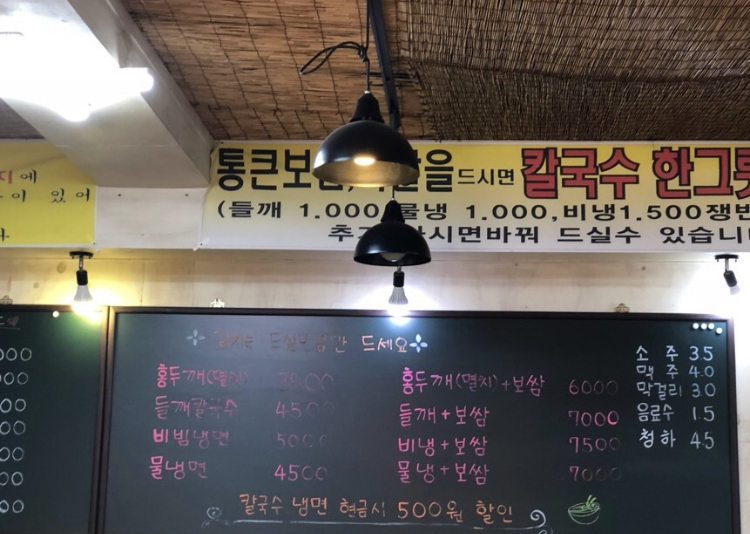 통큰보 을드시면 칼국수 한그릇
(들깨 1.000, 물냉 1.000,비냉1.500쟁반
추 시면바꿔 드실수 있습니
지에
이 있어
다
드실만큼만 드세요
홍두깨(멸치) 3500
들깨칼국수 4500
비빔냉면 5000
물냉면 4500
홍두깨(멸치)+보쌈 6000
들깨+보쌈 7000
비냉+보쌈 7500
물냉+보쌈 7000
소주 3.5
맥주 4.0
막걸리 3.0
음료수 1.5
청하 4.5
칼국수 냉면 현금시 500원 할인